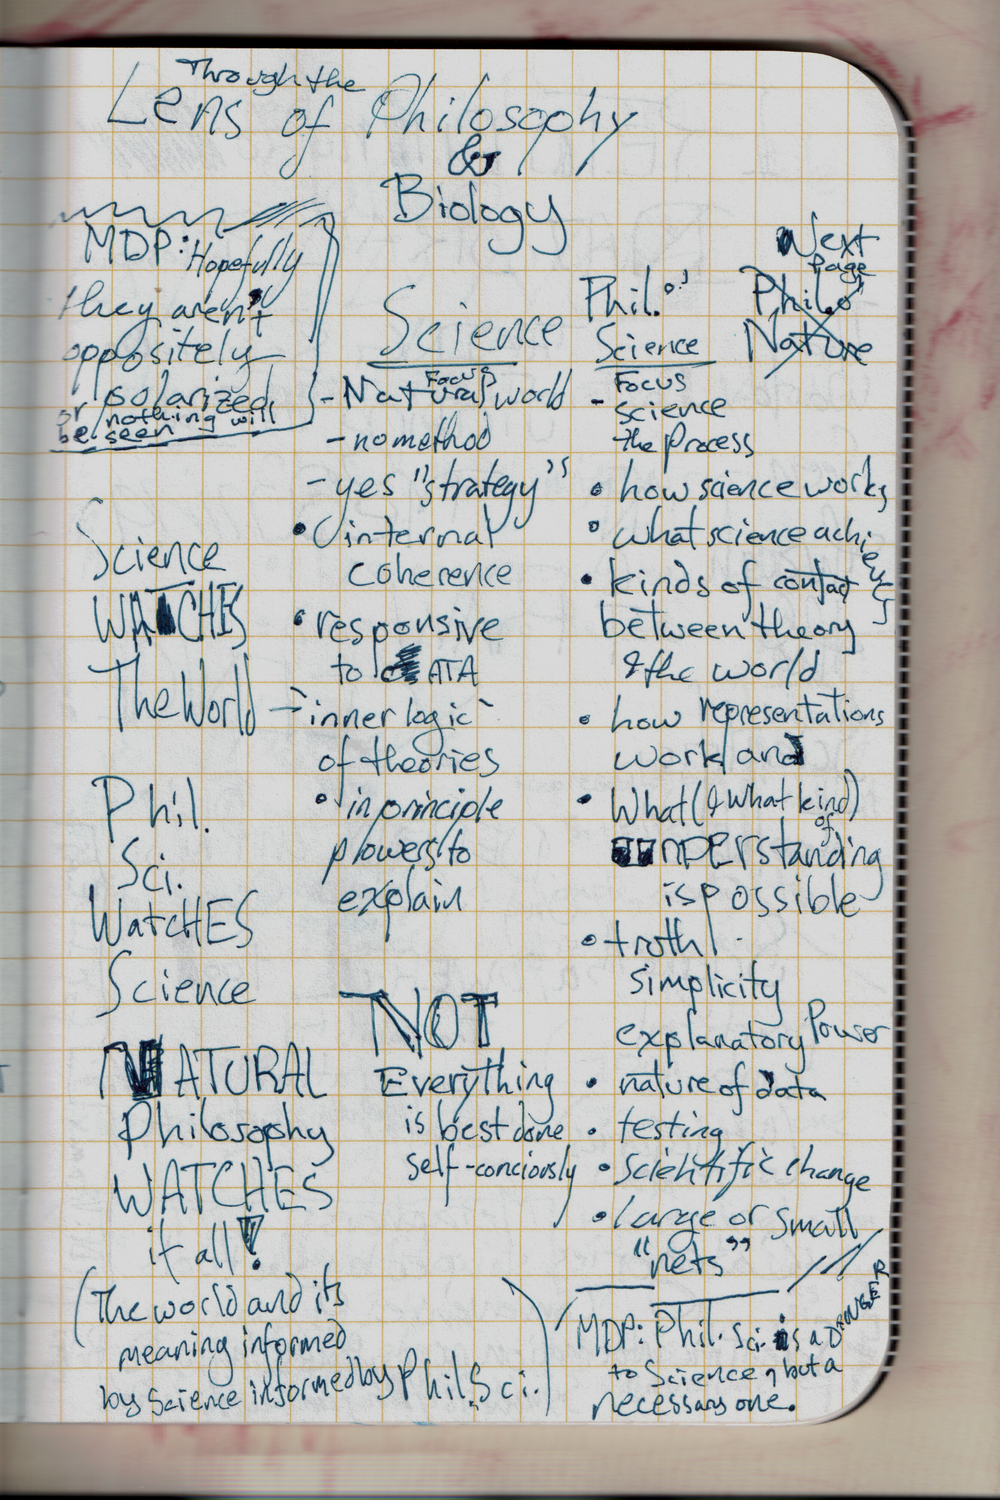 Through the
Lens of Philosophy
&
Biology
MDP: Hopefully
they aren't
oppositely
polarized
or nothing will
be seen
Science
WATCHES
The World
Phil.
Sci.
WatcHES
Science
NATURAL
Philosophy
WATCHES
it all!
(The world and its
meaning informed
by Science informed by Phil Sci.)
Science
Focus
- Natural world
- no method
- yes "strategy"s
• internal
coherence
• responsive
to DATA
- inner logic
of theories
• in principle
powers to
explain
NOT
Everything
is best done
self-conciously
Phil. of
Science
Focus
- science
the Process
• how science works
• what science achieves
• kinds of contact
between theory
& the world
• how representations
work and
• What (& what kind)
of
unDERstanding
is possible
• truth
simplicity
explanatory Power
• nature of data
• testing
• scientific change
• large or small
"nets"
MDP: Phil. Sci. is a DANGER
to Science, but a
necessary one.
Next
Page
Philo
Nature